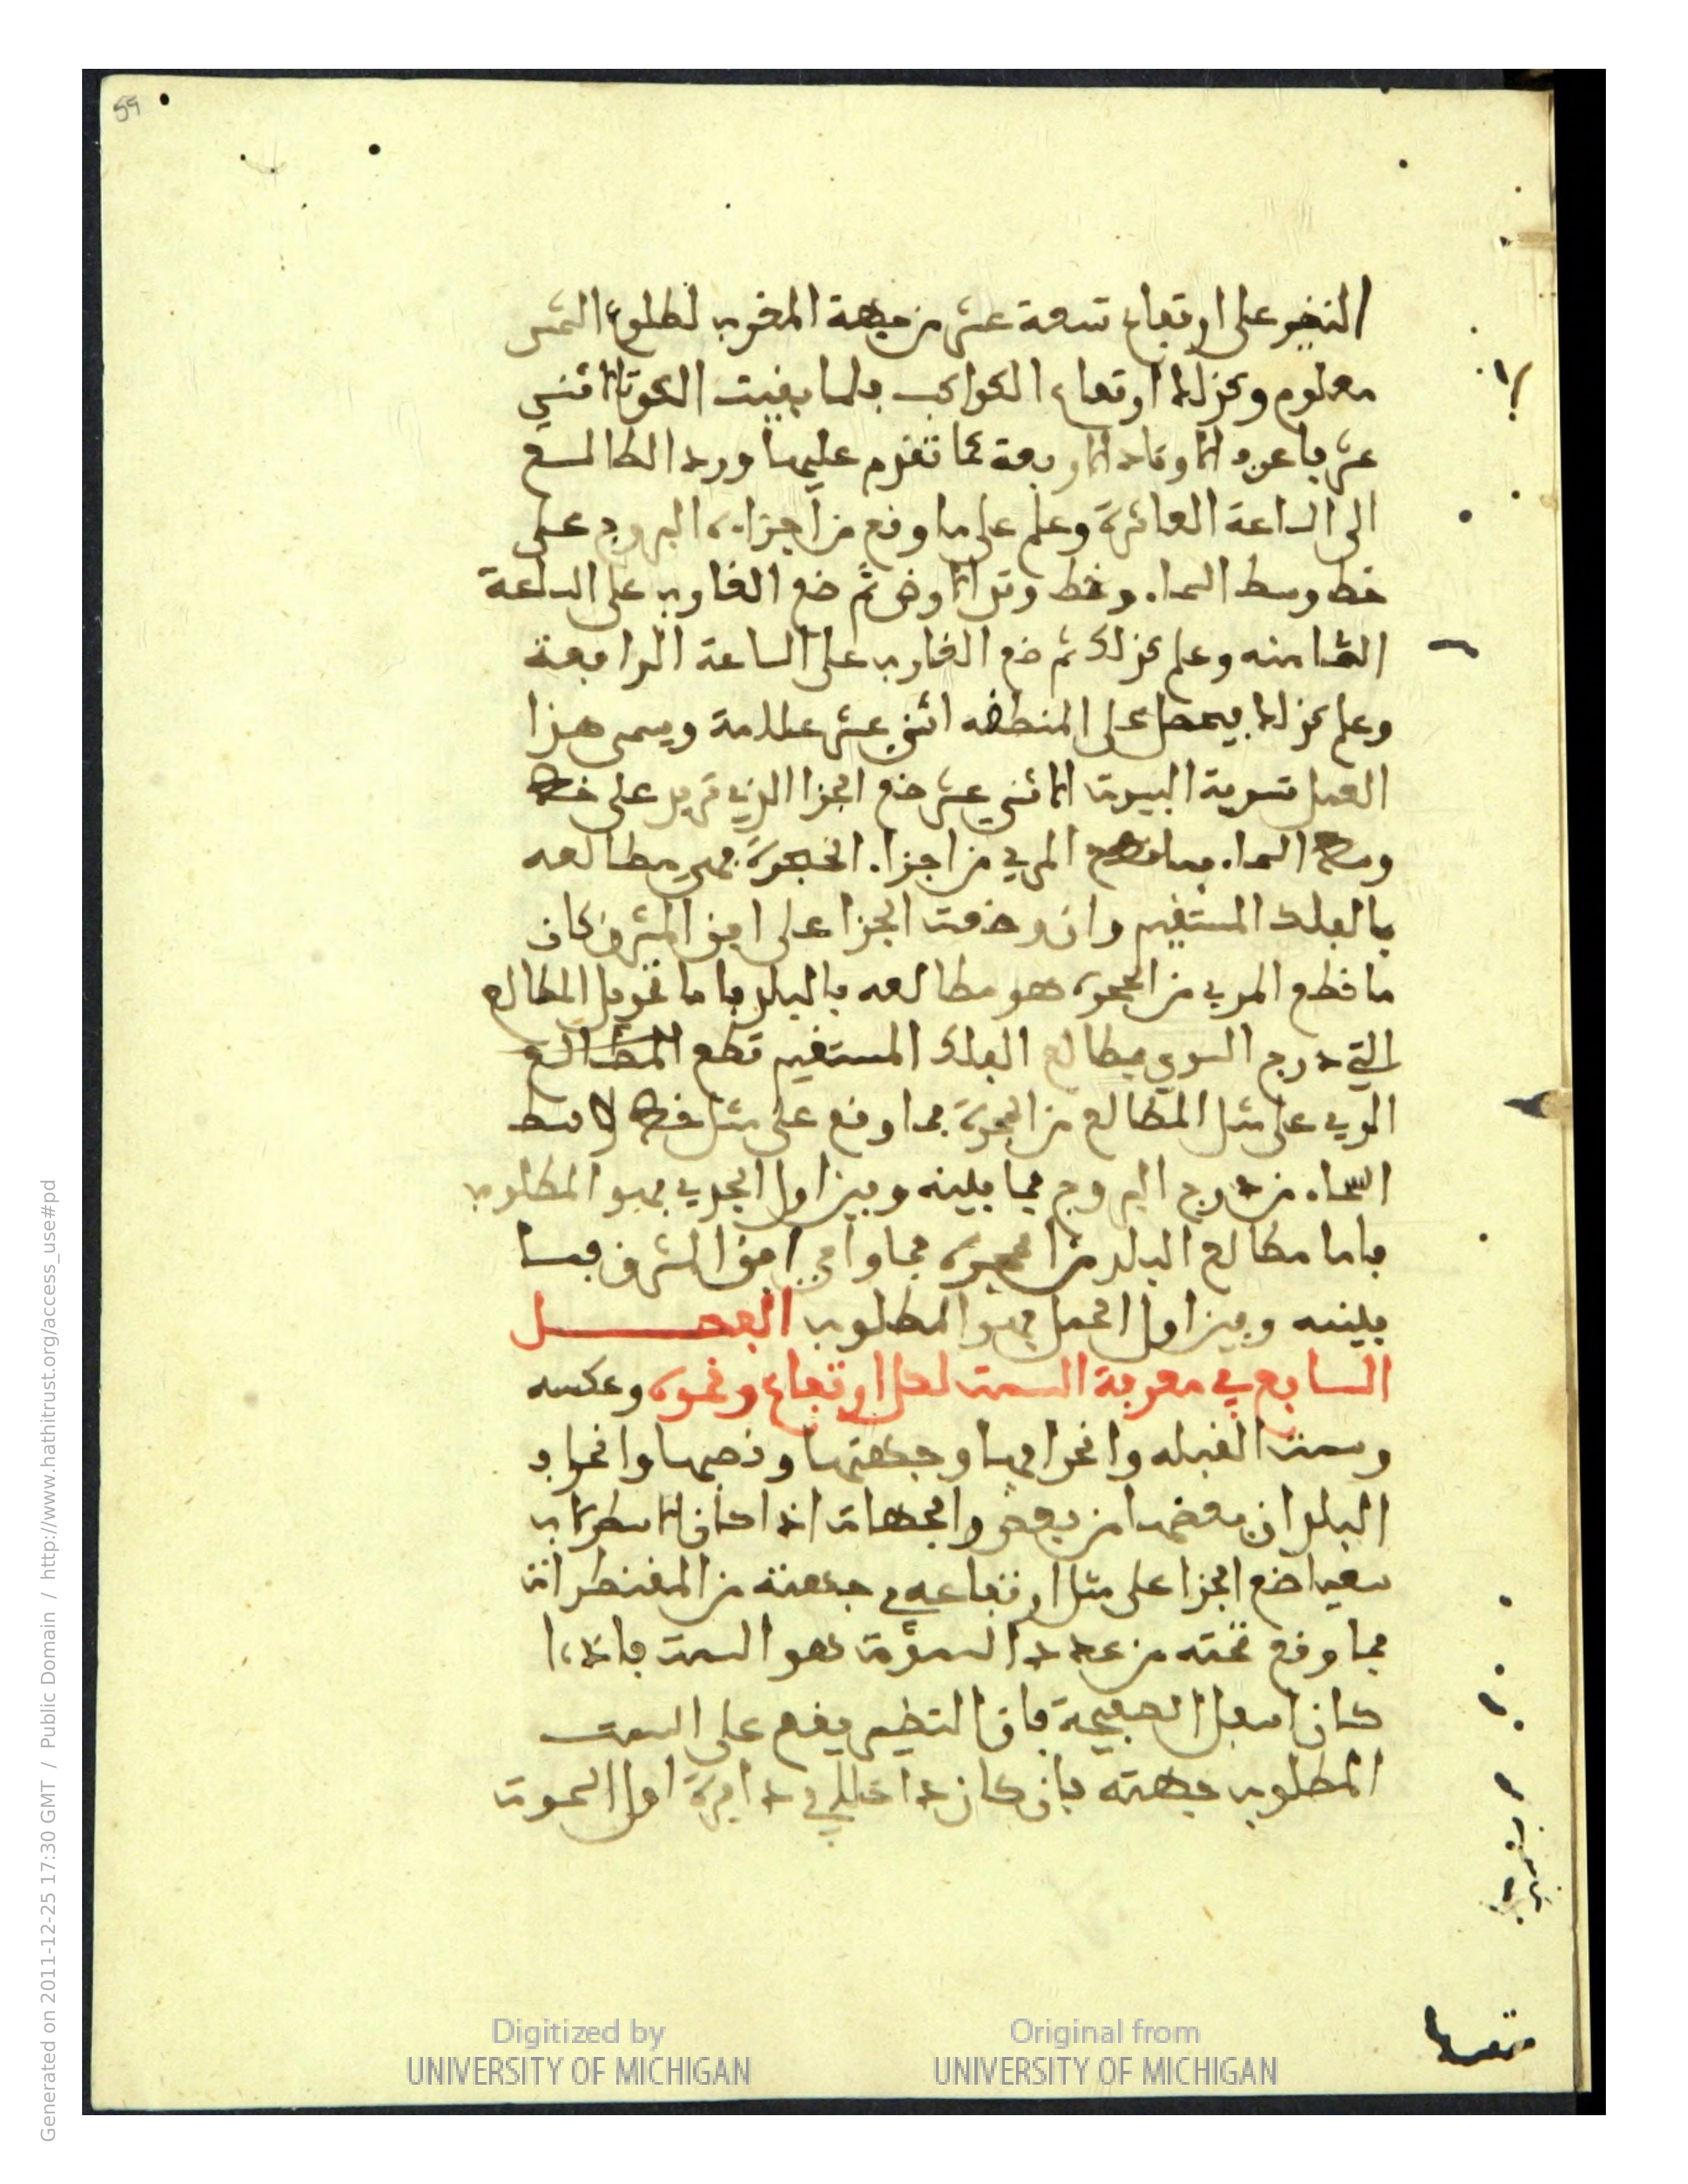 59
النضير على ارتفاع تسعة عشر من جهة المغرب لطلوع الشمس
معلوم وكذلك ارتفاع الكواكب فلما بقيت البيوت الاثني
عشر فاعرف الاوتاد الاربعة كما تقدم عليها ورد الطالع
الى الساعة العاشرة وعلم على ما وقع من اجزاء البروج على
خط وسط السماء وخط وتد الارض ثم ضع الغارب على الساعة
الثامنه وعلم كذلك ثم ضع الغارب على الساعة الرابعة
وعلم كذلك فيحصل على المنطقه اثني عشر علامة ويسمى هذا
العمل تسوية البيوت الاثني عشر ضع الجزا الذي تريد على خط
وسط السماء فما قطع المري من اجزاء الحجرة فهي مطالعه
بالفلك المستقيم وان وضعت الجزا على افق المشرق كان
ما قطع المري من الحجرة هو مطالعه بالبلد فاما تحويل المطالع
التي درج السوي بمطالع الفلك المستقيم تضع
المري على مثل المطالع من الحجرة فما وقع على مثل خط وسط
السماء من درج البروج فما بينه وبين اول الجدي فهو المطلوب
فاما مطالع البلد من الحجرة فما وافى افق المشرق فما
بينه وبين اول الحمل فهو المطلوب الفصل
السابع في معرفة السمت لكل ارتفاع ونحوه وعكسه
وسمت القبله وانحرافها وجهتها ونصبها وانحراف
البلدان بعضها من بعض والجهات اذا كان الاسطرلاب
سعيا ضع الجزا على مثل ارتفاعه في جهته من المقنطرات
فما وقع تحته من عدد السموت هو السمت فاذا
كان اسفل الصفيحة فان النظير يقع على السمت
المطلوب جهته فان كان داخلا في دايرة اول السموت